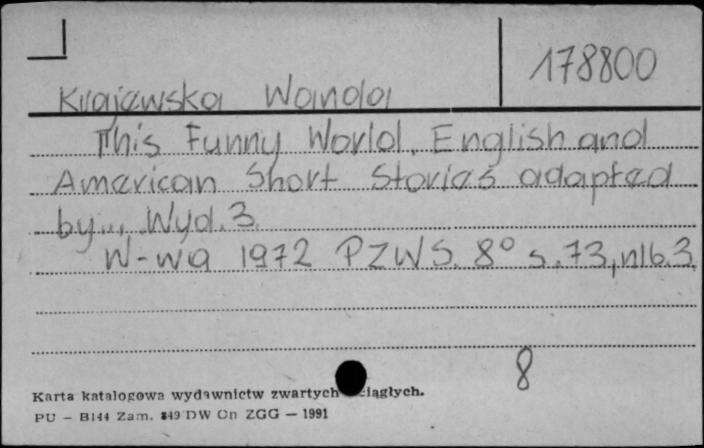 178800
Krajewska Wanda
This Funny World. English and
American Short Stories adapted
by... Wyd. 3.
W-wa 1972 PZWS. 8° s. 73, nlb. 3.
8
Karta katalogowa wydawnictw zwartych ciągłych.
PU — B144 Zam. 849 DW Cn ZGG — 1991